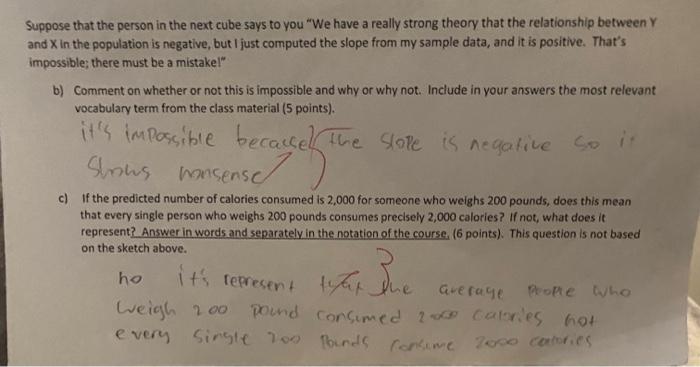 Suppose that the person in the next cube says to you "We have a really strong theory that the relationship between Y
and X in the population is negative, but I just computed the slope from my sample data, and it is positive. That's
impossible; there must be a mistake!"
b) Comment on whether or not this is impossible and why or why not. Include in your answers the most relevant
vocabulary term from the class material (5 points).
it's impossible because the slope is negative so it
shows nonsense
c) If the predicted number of calories consumed is 2,000 for someone who weighs 200 pounds, does this mean
that every single person who weighs 200 pounds consumes precisely 2,000 calories? If not, what does it
represent? Answer in words and separately in the notation of the course. (6 points). This question is not based
on the sketch above.
3
no it's represent that the average people who
weigh 200 pound consumed 2000 calories not
every single 200 pounds consume 2000 calories